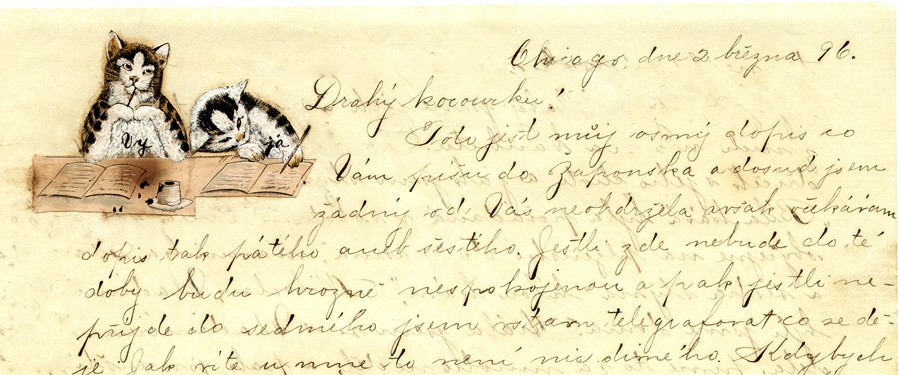 Chicago, dne 2 března 96.
Drahý kocourku!
Vy
já
Toto jest můj osmý dopis co
Vám píšu do Japonska a dosud jsem
žádný od Vás neobdržela avšak očekávám
dopis tak pátého aneb šestého. Jestli zde nebude do té
doby budu hrozně nespokojenou a pak jestli ne-
přijde do sedmého jsem telegrafovat co se dě-
je. Jak víte u mne to není nic divného. Kdybych